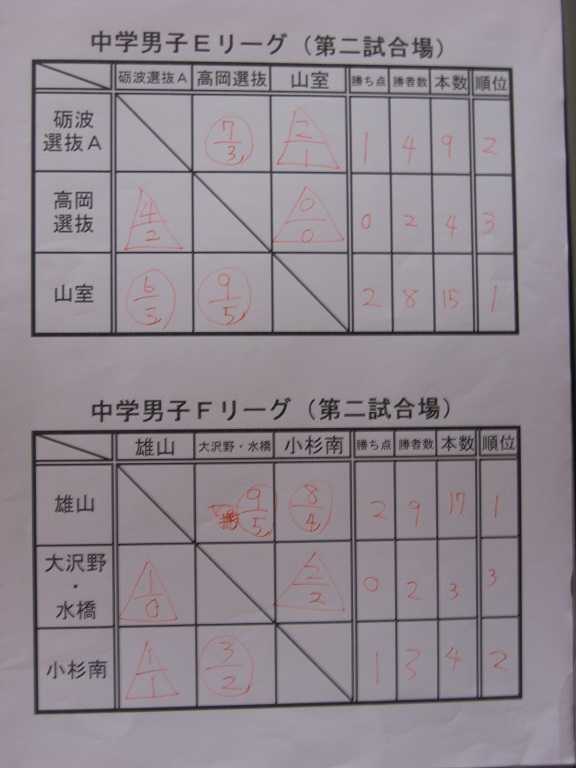 中学男子Eリーグ（第二試合場）
砺波選抜A 高岡選抜 山室 勝ち点 勝者数 本数 順位
砺波
選抜A
7/3 2/1 1 4 9 2
高岡
選抜
4/2 0/0 0 2 4 3
山室 6/3 9/5 2 8 15 1
中学男子Fリーグ（第二試合場）
雄山 大沢野・水橋 小杉南 勝ち点 勝者数 本数 順位
雄山 9/5 8/4 2 9 17 1
大沢野
・
水橋
1/0 2/2 0 2 3 3
小杉南 1/1 3/2 1 3 4 2